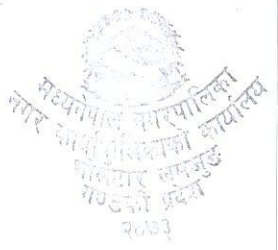 मध्यनेपाल नगरपालिका
नगर कार्यपालिकाको कार्यालय
लमजुङ
गण्डकी प्रदेश
२०७३